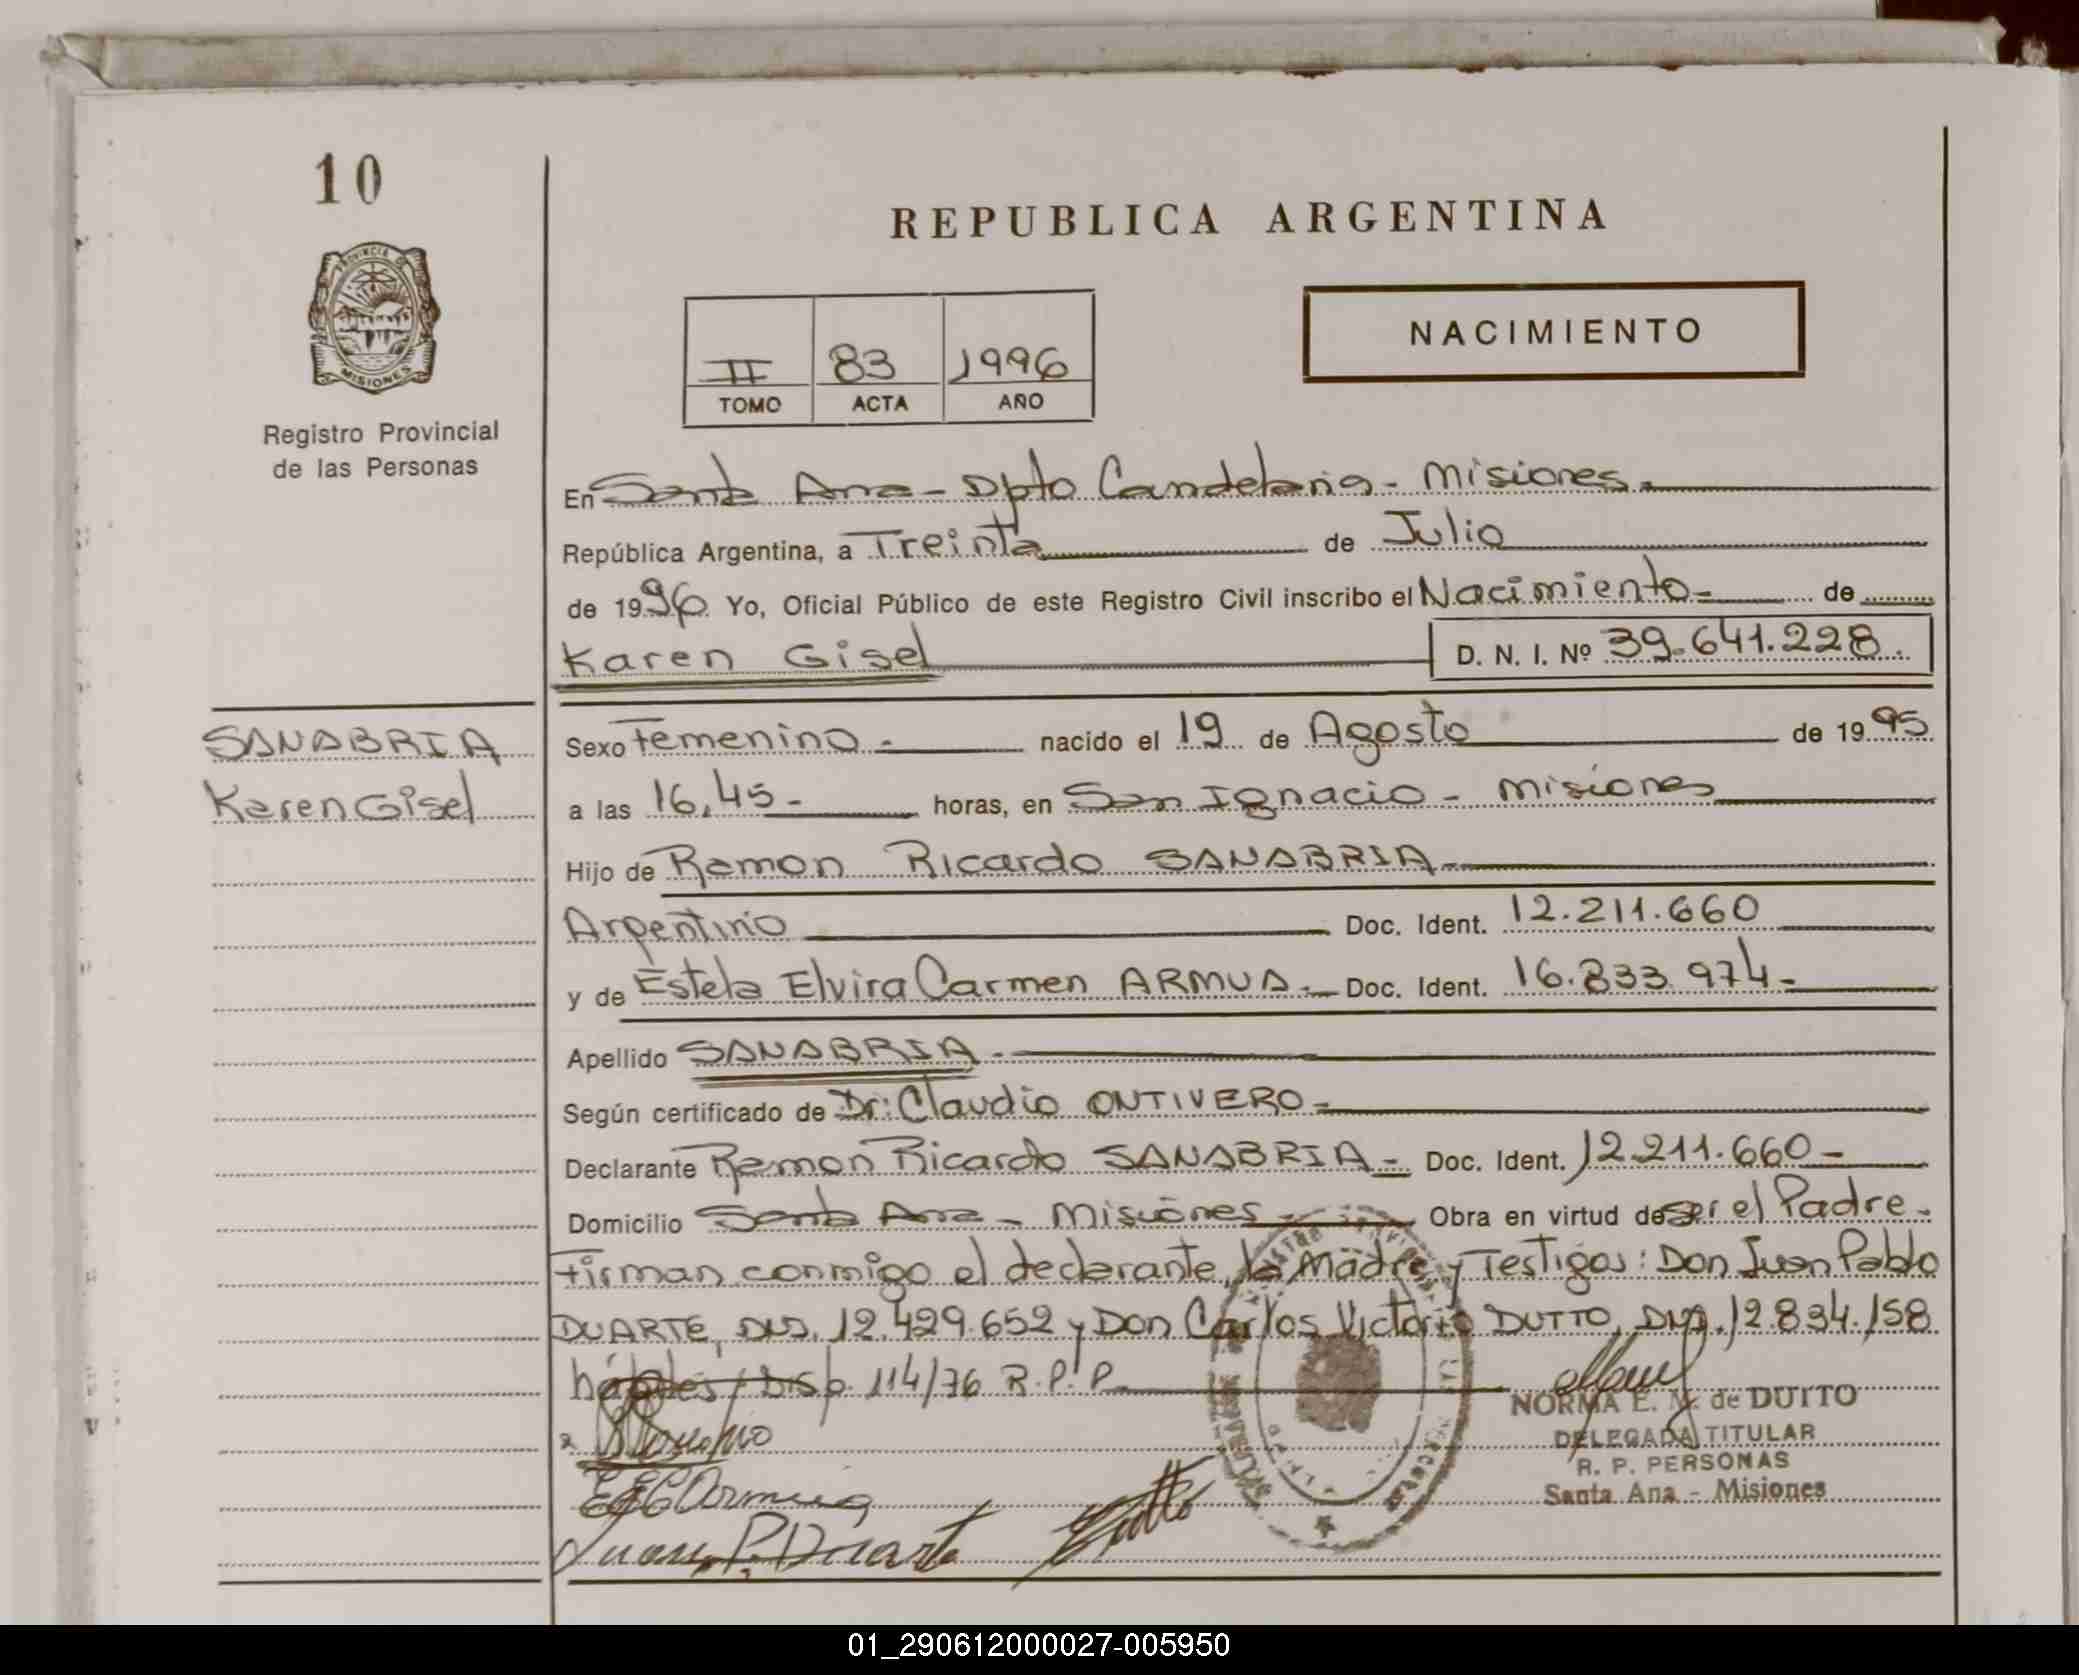 10
REPUBLICA ARGENTINA
PROVINCIA DE
MISIONES
Registro Provincial
de las Personas
II 83 1996
TOMO ACTA AÑO
NACIMIENTO
En Santa Ana - Dpto Candelaria - Misiones.
República Argentina, a Treinta de Julio
de 1996. Yo, Oficial Público de este Registro Civil inscribo el Nacimiento - de
Karen Gisel D. N. I. Nº 39.641.228.
SANABRIA
Karen Gisel
Sexo Femenino - nacido el 19 de Agosto de 1995
a las 16,45 - horas, en San Ignacio - Misiones
Hijo de Ramon Ricardo SANABRIA -
Argentino Doc. Ident. 12.211.660
y de Estela Elvira Carmen ARMUA. - Doc. Ident. 16.833.974 -
Apellido SANABRIA. -
Según certificado de Dr: Claudio ONTIVERO -
Declarante Ramon Ricardo SANABRIA - Doc. Ident. 12.211.660 -
Domicilio Santa Ana - Misiones - Obra en virtud de ser el Padre.
Firman conmigo el declarante, la Madre y Testigos: Don Juan Pablo
DUARTE, DNI. 12.429.652 y Don Carlos Victorio DUTTO, DNI. 12.834.158
hábiles / Disp. 114/76 R.P.P.
NORMA E. M. de DUTTO
DELEGADA TITULAR
R. P. PERSONAS
Santa Ana - Misiones
E E C Armua
Juan P. Duarte Dutto
01_290612000027-005950